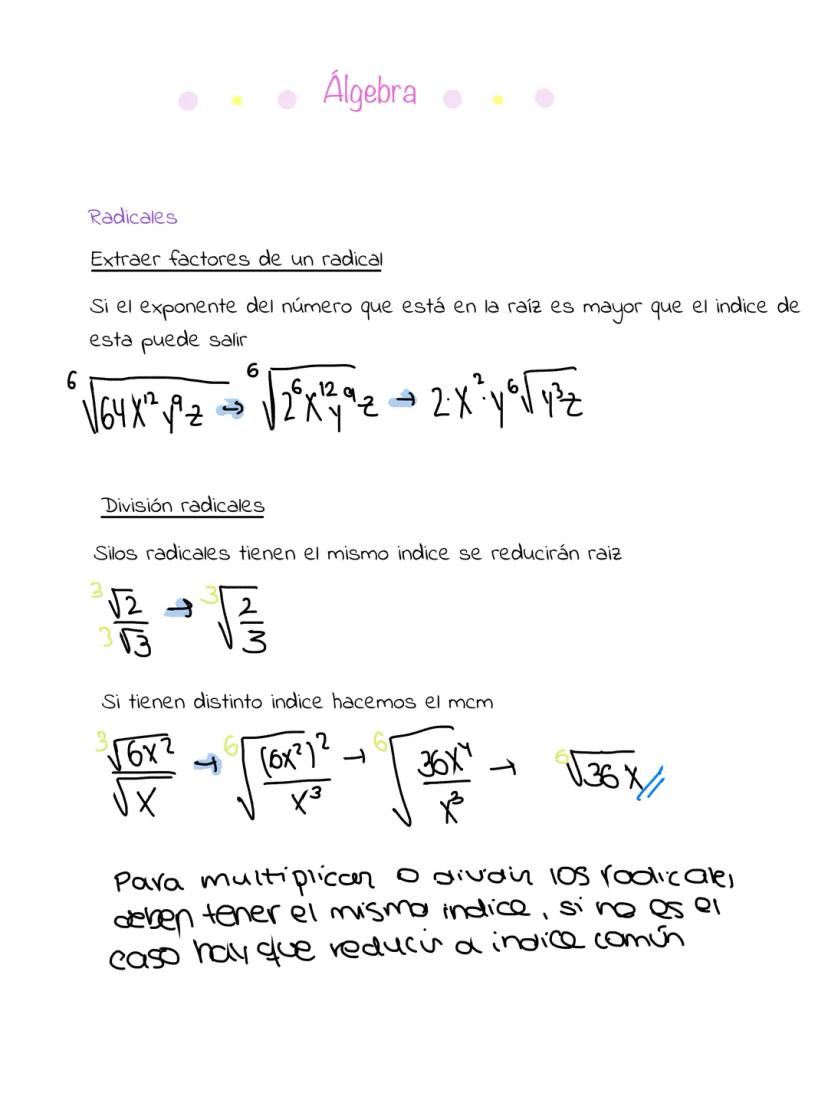 Álgebra
Radicales
Extraer factores de un radical
Si el exponente del número que está en la raíz es mayor que el indice de
esta puede salir
⁶√(64x¹²y⁹z) → ⁶√(2⁶x¹²y⁹z) → 2·x²·y ⁶√(y³z)
División radicales
Silos radicales tienen el mismo indice se reducirán raiz
³√2 / ³√3 → ³√(2/3)
Si tienen distinto indice hacemos el mcm
³√(6x²) / √x → ⁶√((6x²)² / x³) → ⁶√(36x⁴ / x³) → ⁶√(36x)
Para multiplicar o dividir los radicales
deben tener el mismo indice, si no es el
caso hay que reducir a indice común